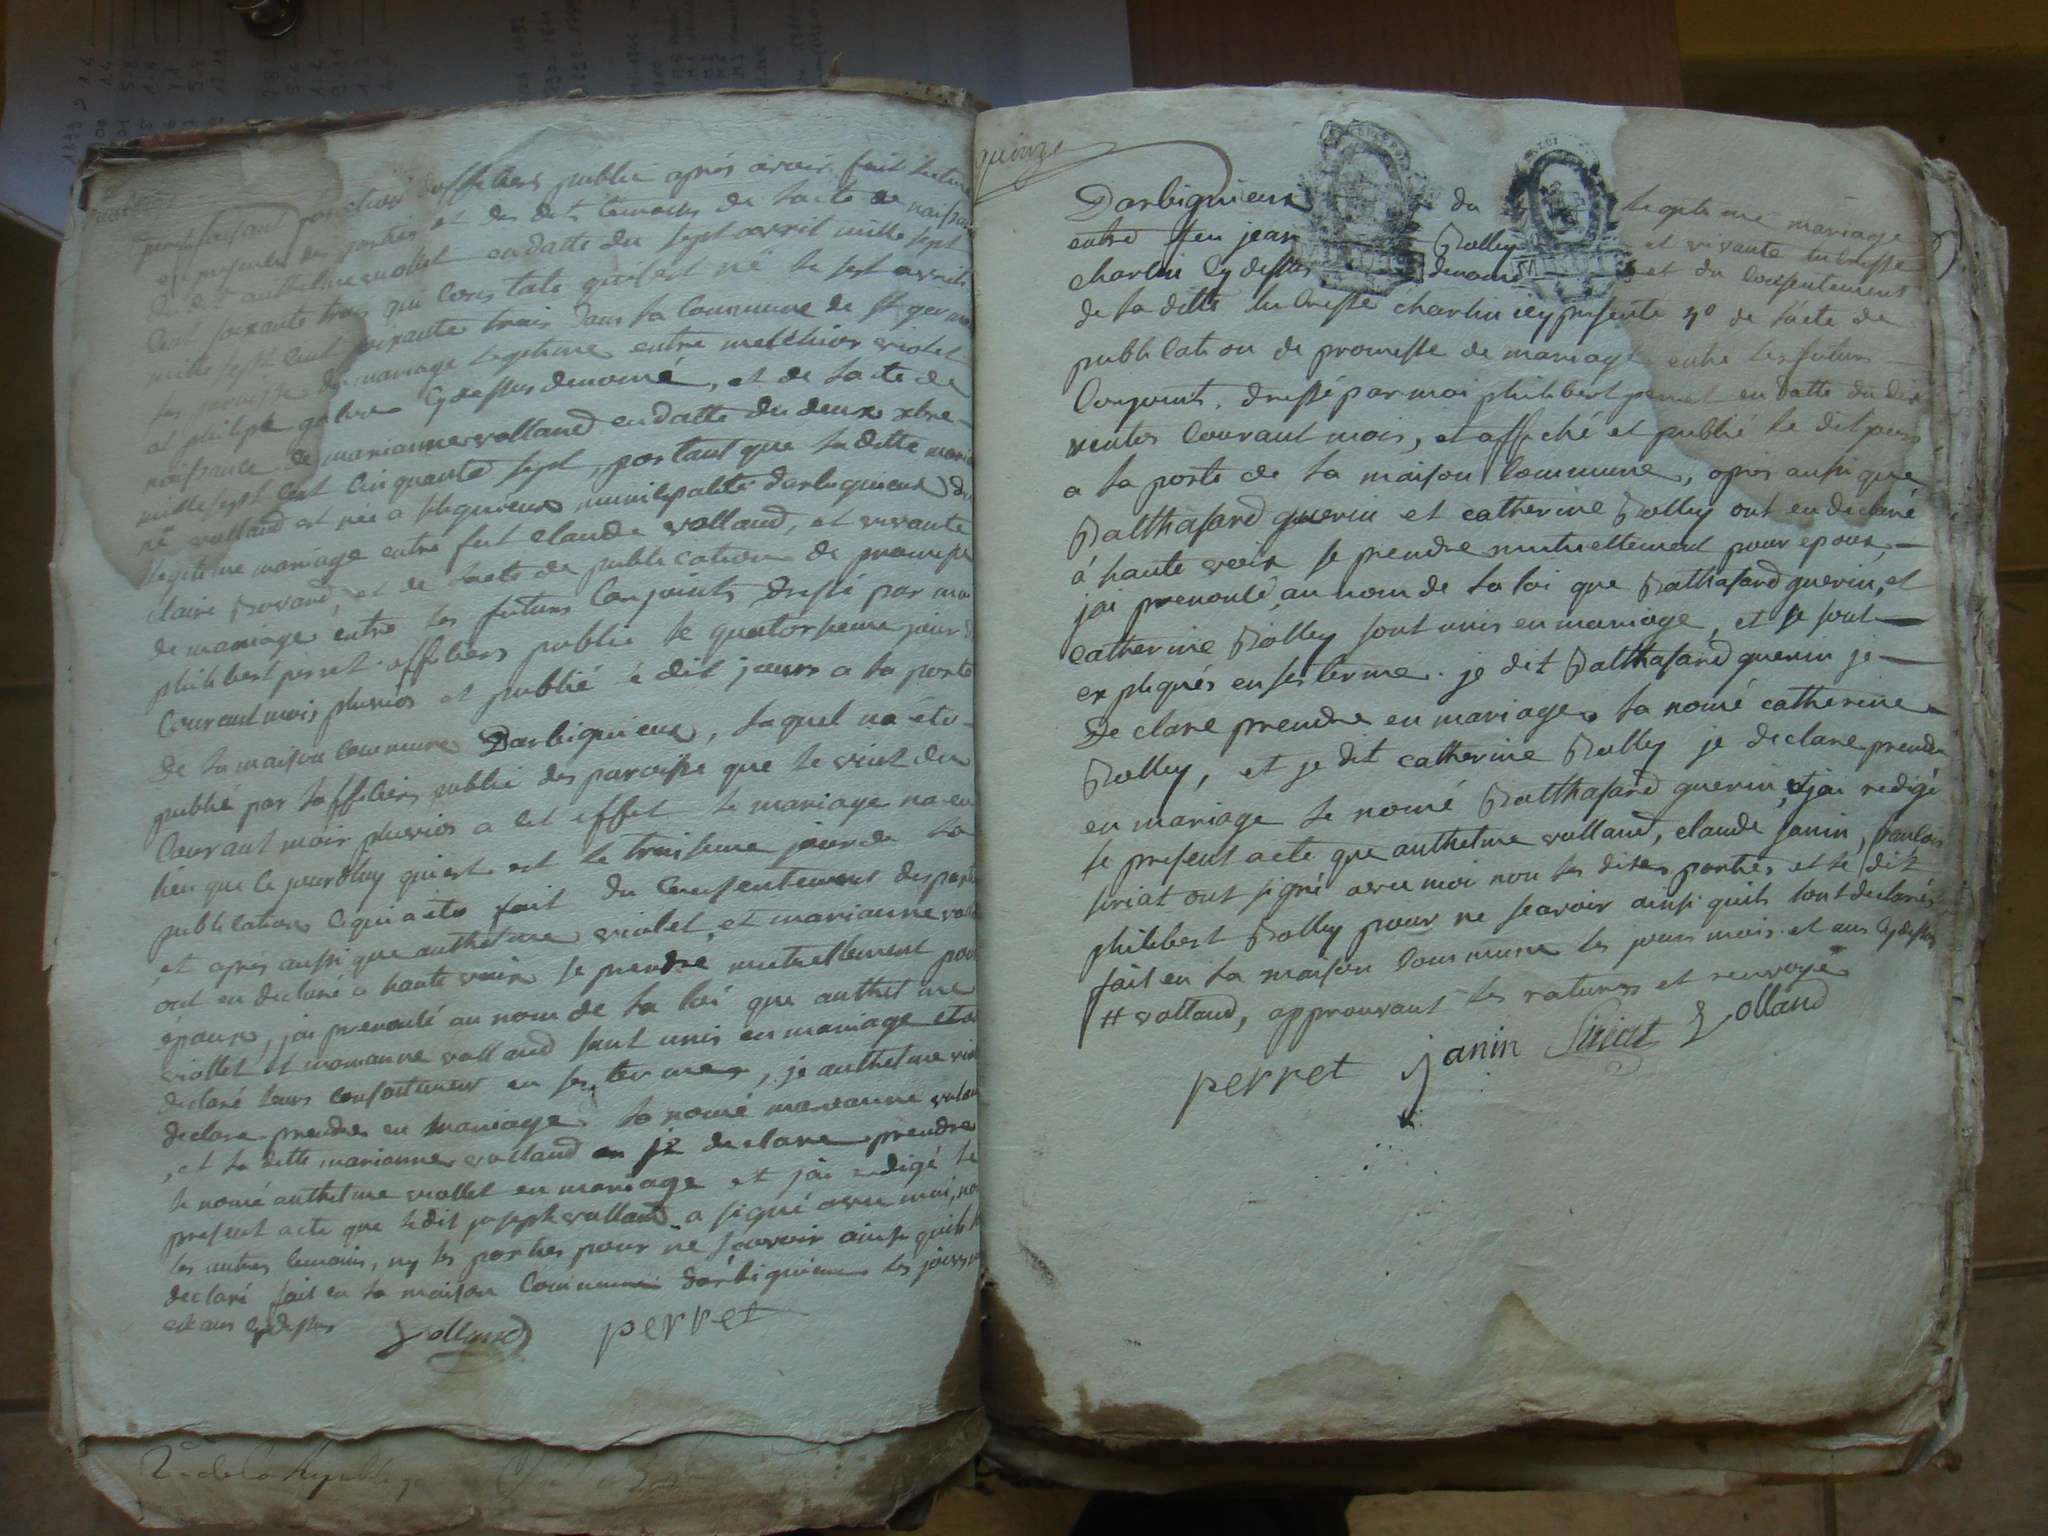 perret faisant fonction dofficiers public après avoir fait lecture
en presence des parties et des dits temoins de lacte de naissance
du dit anthelme violet en datte du sept avril mille sept
Cent soixante trois qui Constate quil est né le sept avril
mille sept Cent soixante trois dans la Commune de st germain
les paroisse du mariage legitime entre melchior violet
et philiple cydessus denomé, et de lacte de
naissance de marianne volland en datte du deux xbre
mille sept Cent Cinquante sept, portant que la ditte marian
ne volland est née a municipalité darbiguieux du
legitime mariage entre feu claude volland, et vivante
claire Bovard, et de lacte de publication de promesse
de mariage entre les futurs Conjoints dressé par moi
philibert perret officiers public le quatorsieme jour du
Courant mois pluvios et publié le dit jours a la porte
De la maison Commune Darbiguieux, laquel na été
publié par lofficiers public des paroisse que le vint du
Courant mois pluvios a cet effet le mariage na eu
lieu que ce jourdhuy qui est le troisieme jour de la
publication ce qui a éte fait du Consentement des parties
et apres aussi que anthelme violet, et marianne volland
ont eu declaré a haute voix se prendre mutuellement pour
epoux, jai prenoncé au nom de la loi que anthelme
viollet et marianne volland sont unis en mariage et ont
declaré leurs consentement en ses termes, je anthelme violet
declare prendre en mariage la nomé marianne volland
, et la ditte marianne volland je declare prendre
le nomé anthelme viollet en mariage et jai redigé le
present acte que ledit joseph volland a signé avec moi, non
les autres temoins, ny les parties pour ne scavoir ainsi quils ont
declaré fait en la maison Commune darbiguieux les jours mois
et ans cydessus
Volland perret
2e de la Republique
quinze
Darbiguieux du legitime mariage
entre feu jean Bolley et vivante lucresse
charlin cy dessus denomé et du consentement
de la ditte lucresse charlin icy presente 4o de lacte de
publication de promesse de mariage entre les futurs
Conjoints, dressé par moi philibert perret en datte du dix
ventos Courant mois, et affiché et publié le dit jours
a la porte de la maison Commune, apres aussi que
Balthasard guerin et catherine Bolley ont eu declaré
à haute voix se prendre mutuellement pour epoux,
jai prenoncé, au nom de la loi que Balthasard guerin, et
catherine Bolley sont unis en mariage, et se sont
expliqués en ses terme. je dit Balthasard guerin je
De clare prendre en mariage la nomé catherine
Bolley, et je dit catherine Bolley je declare prendre
en mariage le nomé Balthasard guerin, et jai redigé
le present acte que anthelme volland, claude janin, francois
siriat ont signé avec moi non les dites parties et le dit
philibert Bolley pour ne scavoir ainsi quils lont declarés
fait en la maison Commune les jours mois et ans cydessus
# volland, approuvant les ratures et renvoye
perret janin Siriat Volland